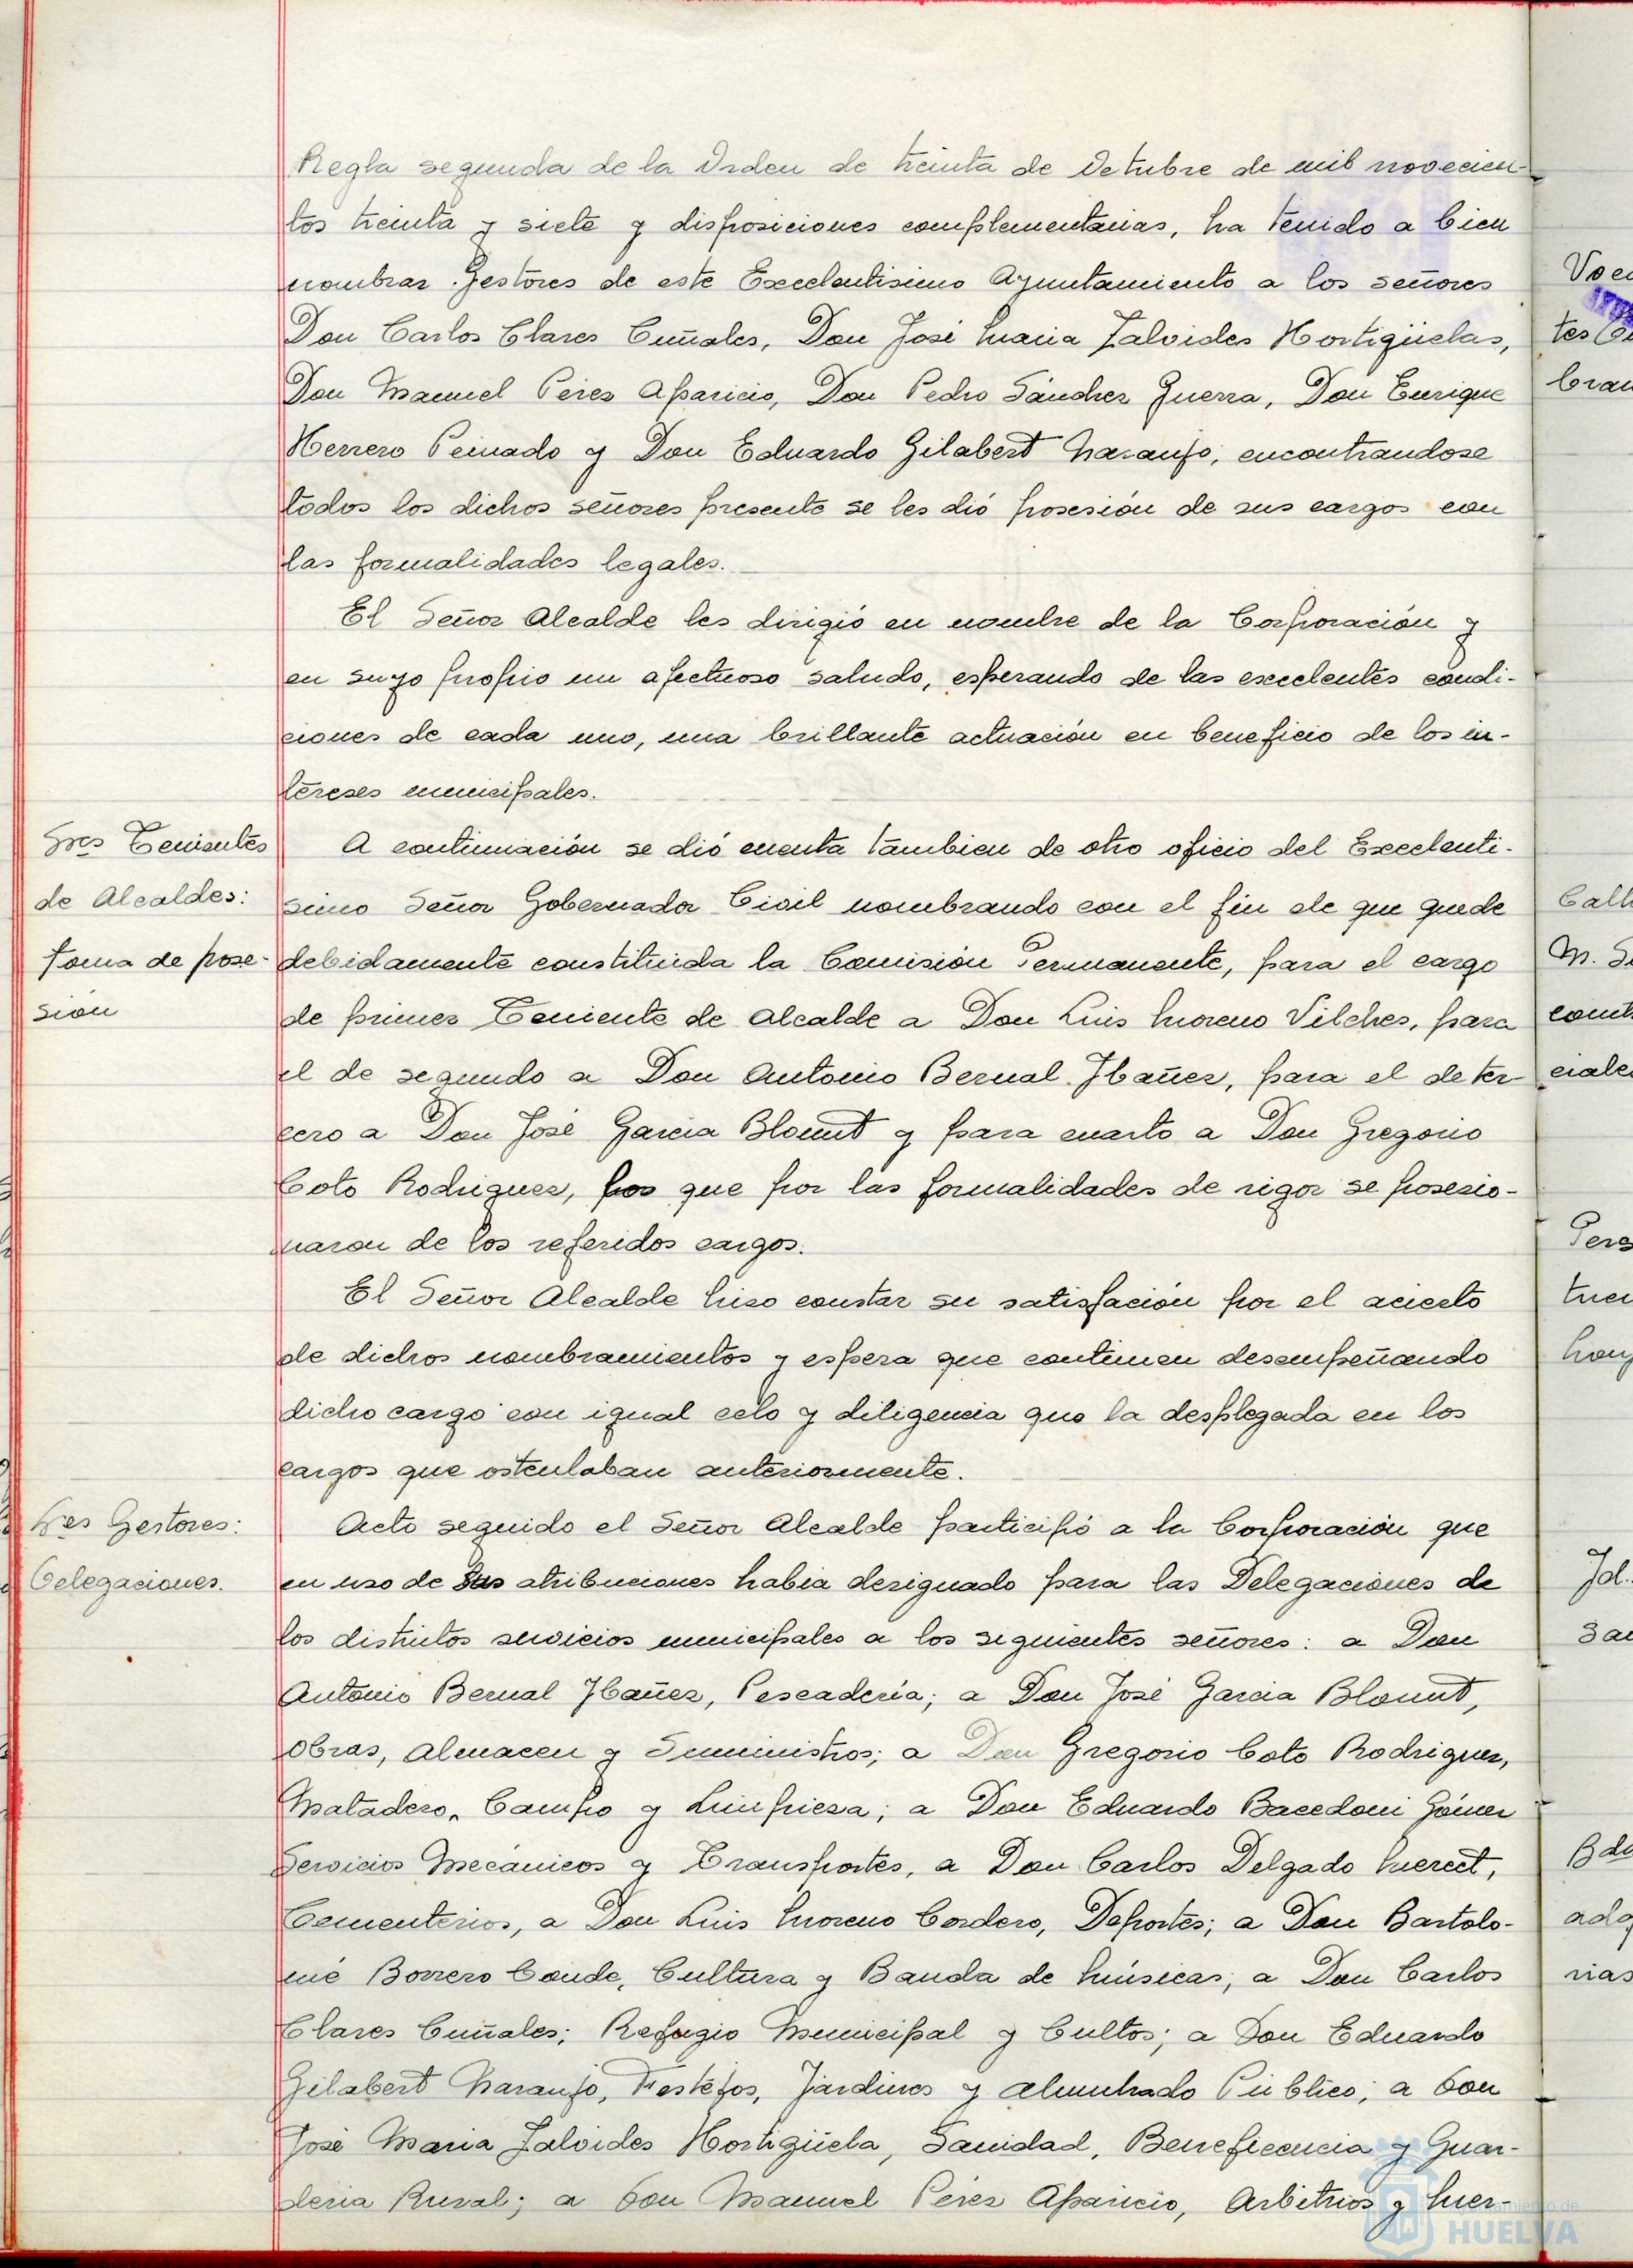 Regla segunda de la Orden de treinta de Octubre de mil novecien-
tos treinta y siete y disposiciones complementarias, ha tenido a bien
nombrar Gestores de este Excelentisimo Ayuntamiento a los señores
Don Carlos Clares Cuñales, Don José Maria Zalvides Hortigüelas,
Don Manuel Peres Aparicio, Don Pedro Sánchez Guerra, Don Enrique
Herrero Peinado y Don Eduardo Gilabert Naranjo, encontrandose
todos los dichos señores presente se les dió posesión de sus cargos con
las formalidades legales.
El Señor Alcalde les dirigió en nombre de la Corporación y
en suyo propio un afectuoso saludo, esperando de las excelentes condi-
ciones de cada uno, una brillante actuación en beneficio de los in-
tereses municipales.
Sres Tenientes
de Alcaldes:
toma de pose-
sion
A continuación se dió cuenta tambien de otro oficio del Excelenti-
simo Señor Gobernador Civil nombrando con el fin de que quede
debidamente constituida la Comisión Permanente, para el cargo
de primer Teniente de Alcalde a Don Luis Moreno Vilches, para
el de segundo a Don Antonio Bernal Ibañez, para el de ter-
cero a Don José Garcia Blount y para cuarto a Don Gregorio
Coto Rodriguez, los que por las formalidades de rigor se posesio-
naron de los referidos cargos.
El Señor Alcalde hiso constar su satisfación por el acierto
de dichos nombramientos y espera que continuen desempeñando
dicho cargo con igual celo y diligencia que la desplegada en los
cargos que ostentaban anteriormente.
Sres Gestores:
Delegaciones.
Acto seguido el Señor Alcalde participó a la Corporación que
en uso de sus atribuciones habia designado para las Delegaciones de
los distintos servicios municipales a los siguientes señores: a Don
Antonio Bernal Ibañez, Pescadería; a Don José Garcia Blount,
obras, Almacen y Suministros; a Don Gregorio Coto Rodriguez,
Matadero, Campo y Limpiesa; a Don Eduardo Bacedoni Gómez
Servicios Mecánicos y Transportes, a Don Carlos Delgado
Cementerios, a Don Luis Moreno Cordero, Deportes; a Don Bartolo-
mé Borrero Conde, Cultura y Banda de Músicas; a Don Carlos
Clares Cuñales; Refugio Municipal y Cultos; a Don Eduardo
Gilabert Naranjo, Festejos, Jardines y Alumbrado Público; a Don
José Maria Zalvides Hortigüela, Sanidad, Beneficencia y Guar-
deria Rural; a Don Manuel Péres Aparicio, Arbitrios y Mer-
HUELVA